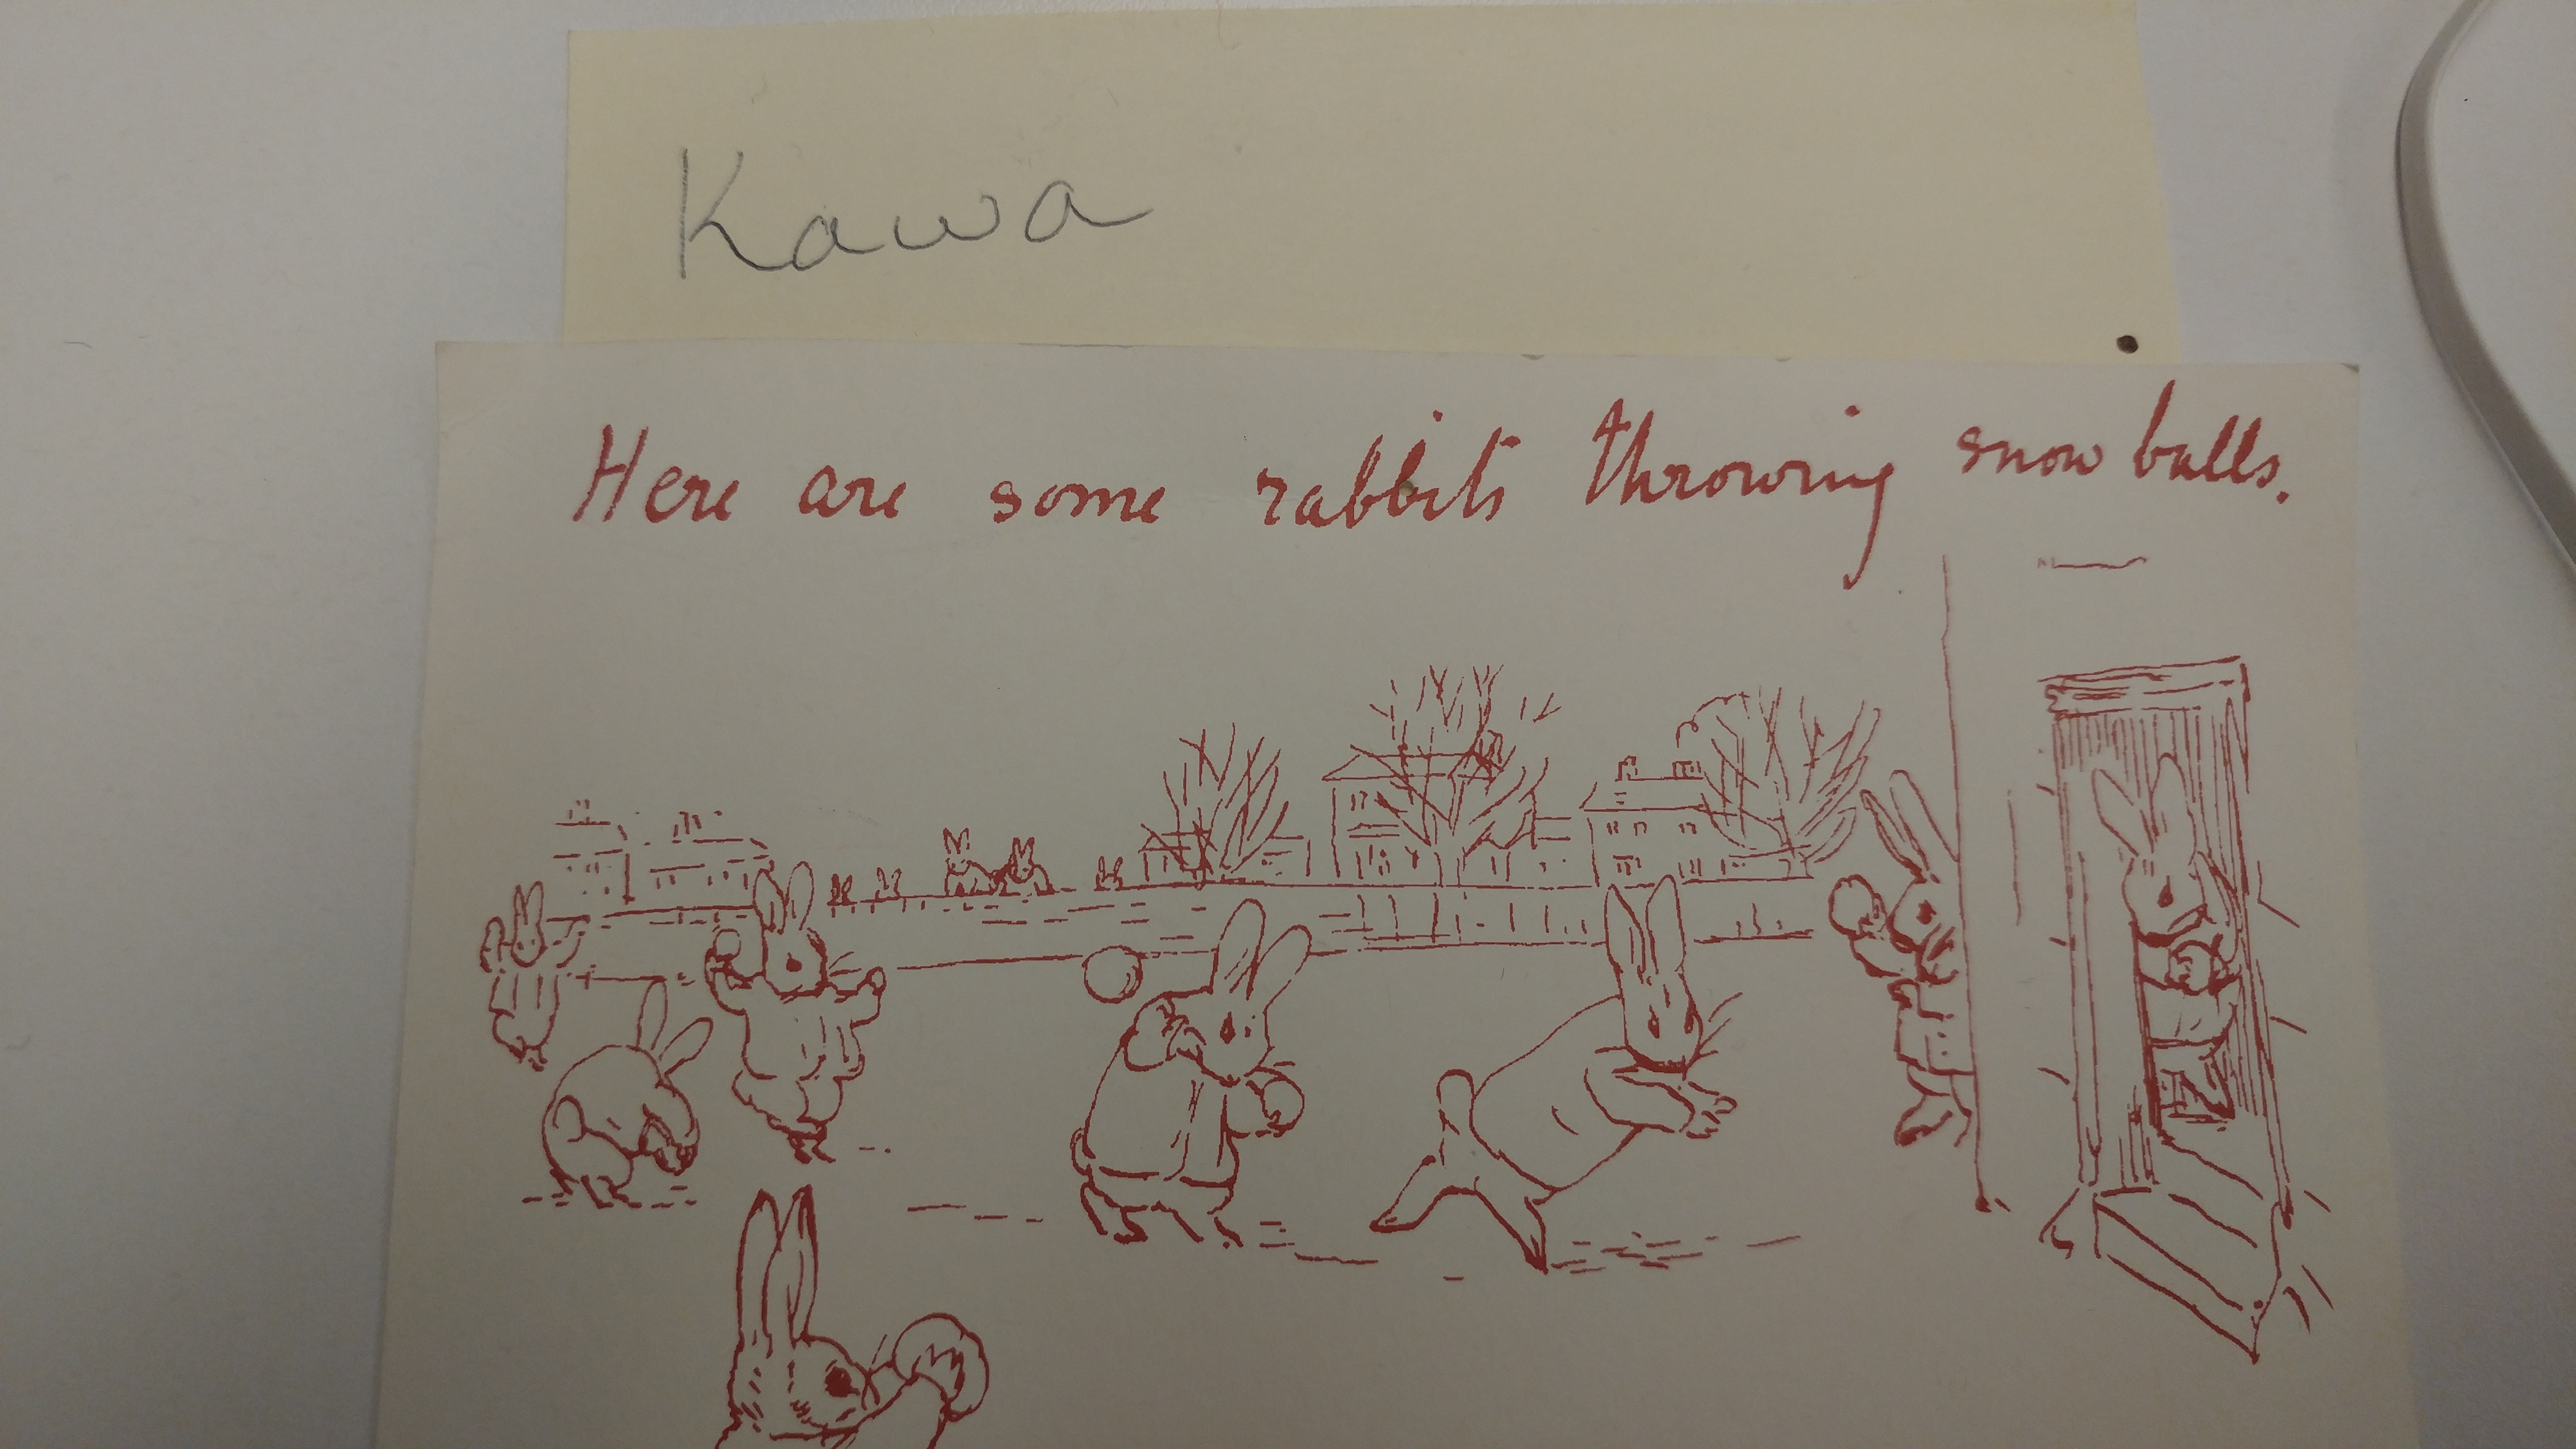 Kawa
Here are some rabbits throwing snow balls.